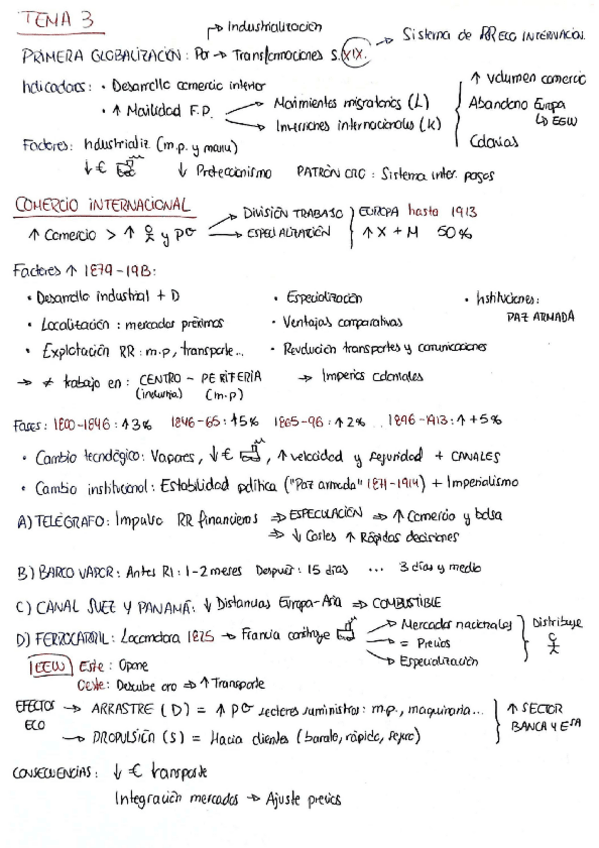 TEMA 3
→ Industrialización
PRIMERA GLOBALIZACIÓN: Por → Transformaciones S. XIX. → Sistema de RRECO INTERNACION.
Indicadores: • Desarrollo comercio interior
• ↑ Movilidad F.P. → Movimientos migratorios (L)
→ Inversiones internacionales (K)
↑ volumen comercio
Abandono Europa
↳ EEUU
Colonias
Factores: Industrializ (m.p. y manu)
↓ € ↓ Proteccionismo PATRÓN ORO: Sistema inter. pagos
COMERCIO INTERNACIONAL
↑ Comercio > ↑ y PO → DIVISIÓN TRABAJO
→ ESPECIALIZACIÓN
EUROPA hasta 1913
↑ X + M 50%
Factores ↑ 1879-1913:
• Desarrollo industrial + D • Especialización • Instituciones:
PAZ ARMADA
• Localización: mercados próximos • Ventajas comparativas
• Explotación RR: m.p, transporte... • Revolución transportes y comunicaciones
→ ≠ trabajo en: CENTRO - PERIFERIA → Imperios coloniales
(industria) (m.p)
Fases: 1800-1846: ↑3% 1846-65: ↑5% 1865-96: ↑2% .. 1896-1913: ↑+5%
• Cambio tecnológico: Vapores, ↓ € , ↑ velocidad y seguridad + CANALES
• Cambio institucional: Estabilidad política ("Paz armada" 1871-1914) + Imperialismo
A) TELÉGRAFO: Impulso RR financieros ⇒ ESPECULACIÓN ⇒ ↑ Comercio y bolsa
⇒ ↓ Costes ↑ Rápidas decisiones
B) BARCO VAPOR: Antes RI: 1-2 meses Después: 15 días ... 3 días y medio
C) CANAL SUEZ Y PANAMÁ: ↓ Distancias Europa-Asia ⇒ COMBUSTIBLE
D) FERROCARRIL: Locomotora 1825 → Francia construye → Mercados nacionales
→ = Precios
→ Especialización
Distribuye
EEUU Este: Opone
Oeste: Descubre oro ⇒ ↑ Transporte
EFECTOS ECO → ARRASTRE (D) = ↑ PO sectores suministros: m.p., maquinaria...
→ PROPULSIÓN (S) = Hacia clientes (barato, rápido, seguro)
↑ SECTOR
BANCA Y Eˢᵃ
CONSECUENCIAS: ↓ € transporte
Integración mercados → Ajuste precios